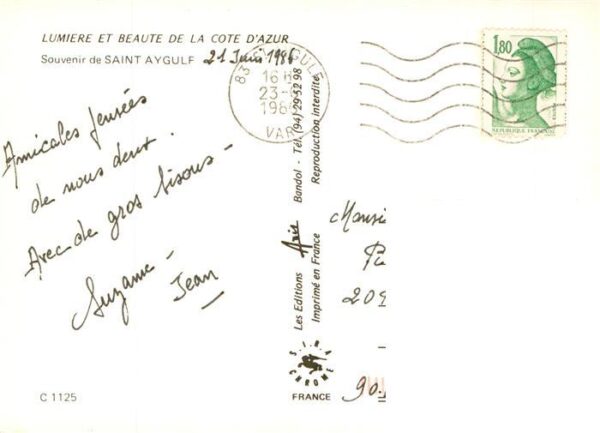 LUMIERE ET BEAUTE DE LA COTE D'AZUR
Souvenir de SAINT AYGULF 21 Juin 1986
1,80
REPUBLIQUE FRANÇAISE
83 AYGULF
16 H
23-
198
VAR
Amicales pensées
de nous deux.
Avec de gros bisous -
Suzanne -
Jean
Les Editions Aris Bandol - Tél. (94) 29.52.98
Imprimé en France Reproduction interdite
Monsi
209
90.
S.I.R.A.
CHROME
FRANCE
C 1125